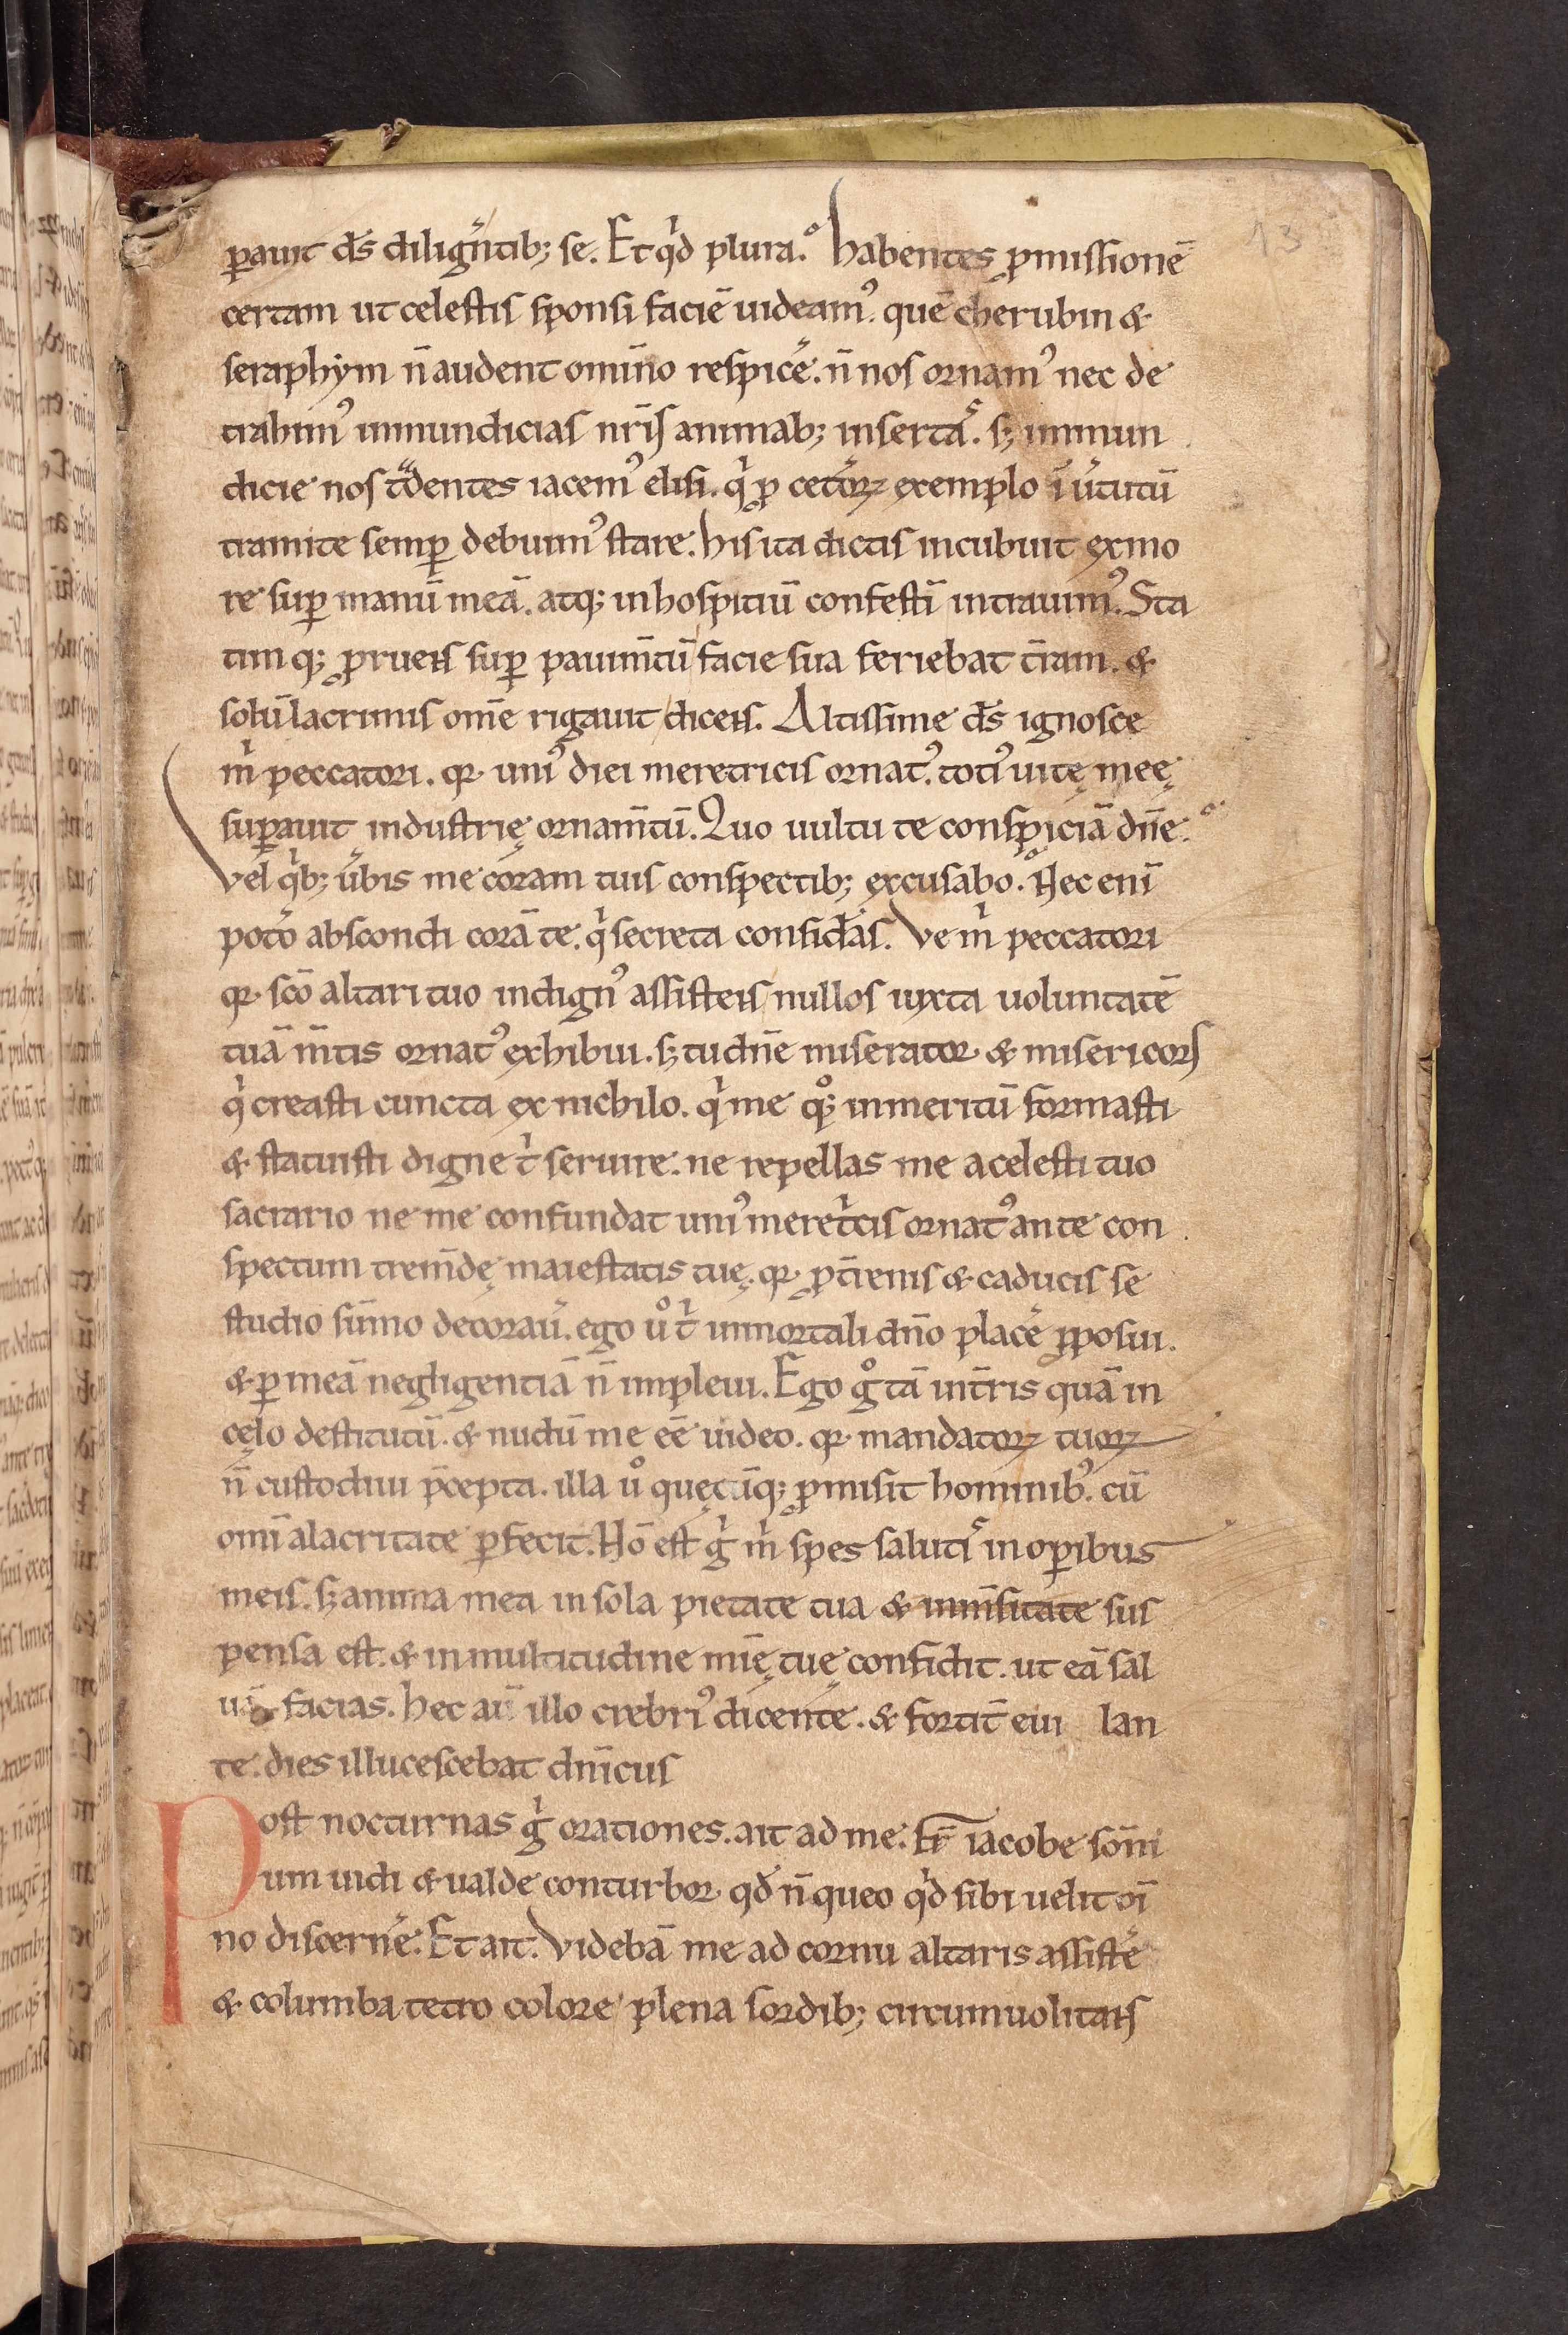 13
ꝑauit ds̄ diligntib; se. Et qͥd plura. habentes ꝓmissionē
certam ut celestis sponsi faciē uideamꝰ. quē cherubin &
seraphym n̄ audent omīno respicē. n̄ nos ornamꝰ nec de
trahimꝰ inmundicias nr̄is animab; insertas. sꝫ inmun
dicie nos tͣdentes iacemꝰ elisi. qͥ ꝓ cetoꝝ exemplo ī ututū
tramite semꝑ debuimꝰ stare. his ita dictis incubuit ex mo
re suꝑ manū meā. atq; in hospitiū confestī intrauimꝰ. Sta
timq; ꝓruens suꝑ pauim̄tū facie sua feriebat t̄ram. &
solū lacrimis om̄e rigauit dicens. Altissime ds̄ ignosce
mͥ peccatori. qr uniꝰ diei meretricis ornatꝰ. totiꝰ uitę meę
suꝑauit industrię ornam̄tū. Quo uultu te conspiciā dn̄e.
vel qͥb; ūbis me coram tuis conspectib; excusabo. Nec enī
poto abscondi corā te. qͥ secreta considas. Ve mͥ peccatori
qr sc̄o altari tuo indignꝰ assistens nullos iuxta uoluntatē
tuā m̄tis ornatꝰ exhibui. sꝫ tu dn̄e miserator & misericors
qͥ creasti cuncta ex nichilo. qͥ me qͦ; inmeritū formasti
& statuisti digne tͥ seruire. ne repellas me a celesti tuo
sacrario ne me confundat uniꝰ meretͥcis ornatꝰ ante con
spectum trem̄dę maiestatis tuę. qr ꝓ t̄renis & caducis se
studio sūmo decorau. ego uͦ tͥ inmortali dn̄o placē ꝓposui.
& ꝑ meā negligentiā n̄ impleui. Ego gͦ tā int̄ris quā in
cęlo destitutū. & nudū me eē uideo. qr mandatoꝝ tuoꝝ
n̄ custodiui p̄cepta. illa uͦ quęcūq; ꝓmisit hominibꝰ. cū
omī alacritate ꝑfecit. Nō est gͥ mͥ spes salutis in oꝑibus
meis. sꝫ anima mea in sola pietate tua & inm̄sitate sus
pensa est. & in multitudine mīę tuę confidit. ut eā sal
uā facias. hec aū illo crebriꝰ dicente. & fortit̄ eiu lan
te. dies illucescebat dn̄icus
Post nocturnas gͥ orationes. ait ad me. Fr̄ iacobe som̄i
um uidi & ualde conturbor qd̄ n̄ queo qͥd sibi uelit oī
no discernē. Et ait. Videbā me ad cornu altaris assistē
& columba tetro colore plena sordib; circumuolitans